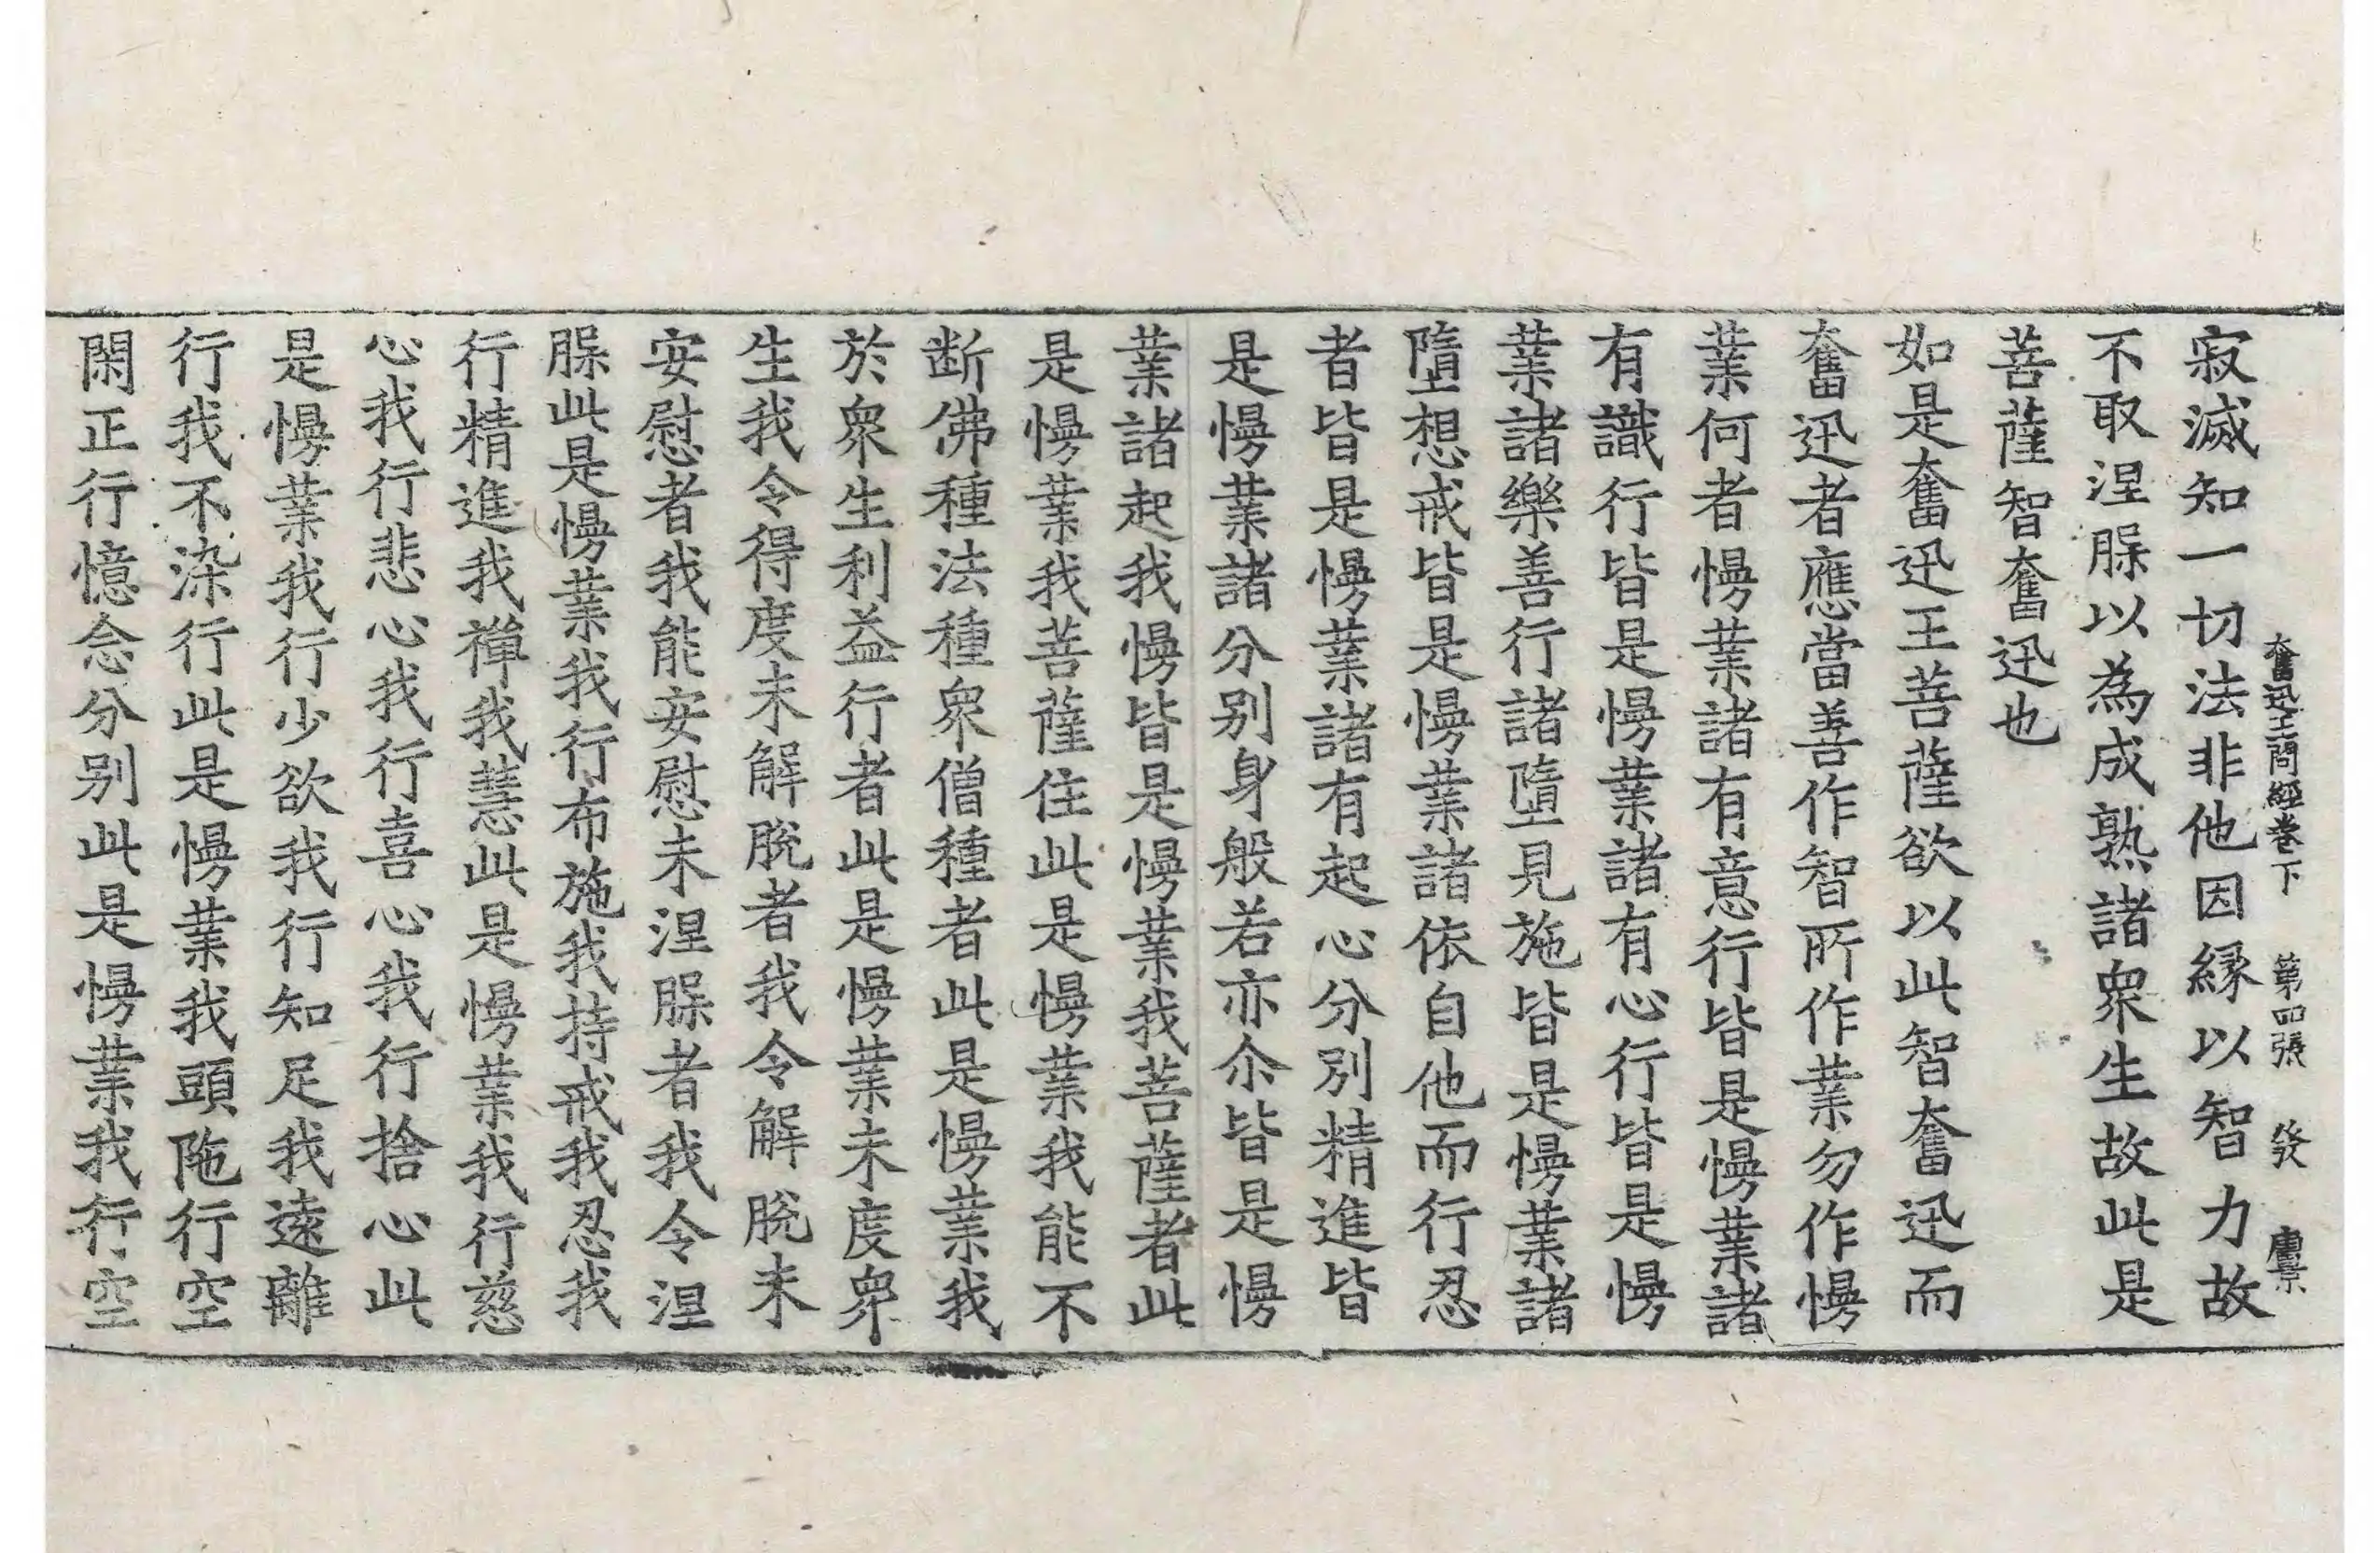 奮迅王問經卷下　第四張　發　
寂滅知一切法非他因縁以智力故
不取涅脲以為成熟諸衆生故此是
菩薩智奮迅也
如是奮迅王菩薩欲以此智奮迅而
奮迅者應當善作智所作業勿作慢
業何者慢業諸有意行皆是慢業諸
有識行皆是慢業諸有心行皆是慢
業諸樂善行諸墮見施皆是慢業諸
墮想戒皆是慢業諸依自他而行忍
者皆是慢業諸有起心分別精進皆
是慢業諸分别身般若亦尒皆是慢
業諸起我慢皆是慢業我菩薩者此
是慢業我菩薩住此是慢業我能不
断佛種法種衆僧種者此是慢業我
於衆生利益行者此是慢業未度衆
生我令得度未解脫者我令解脫未
安慰者我能安慰未涅脲者我令涅
脲此是慢業我行布施我持戒我忍我
行精進我禪我慧此是慢業我行慈
心我行悲心我行喜心我行捨心此
是慢業我行少欲我行知足我遠離
行我不染行此是慢業我頭陁行空
閑正行憶念分别此是慢業我行空